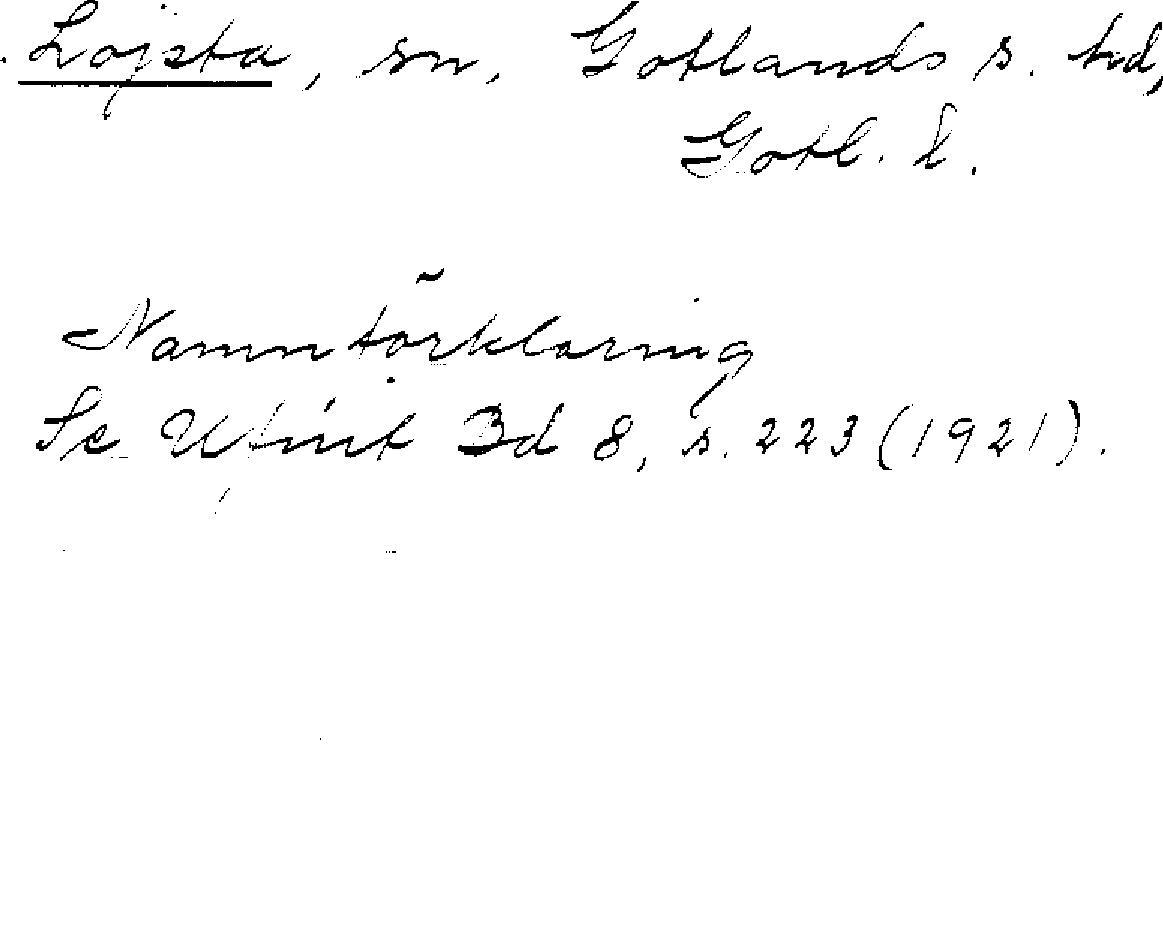 Lojsta, sn, Gotlands s. hd,
Gotl. l.
Namnförklaring
Se Bd 8, s. 223 (1921).